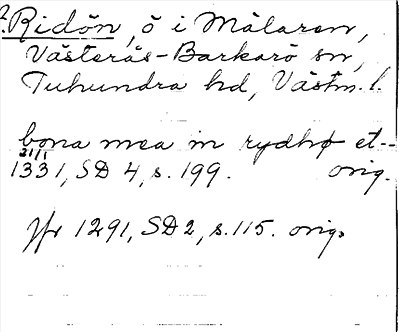 ?Ridön, ö i Mälaren,
Västerås-Barkarö sn,
Tuhundra hd, Västm. l.
bona mea in rydhø et--
21/1
1331, SD 4, s. 199. orig.
Jfr 1291, SD 2, s. 115. orig.